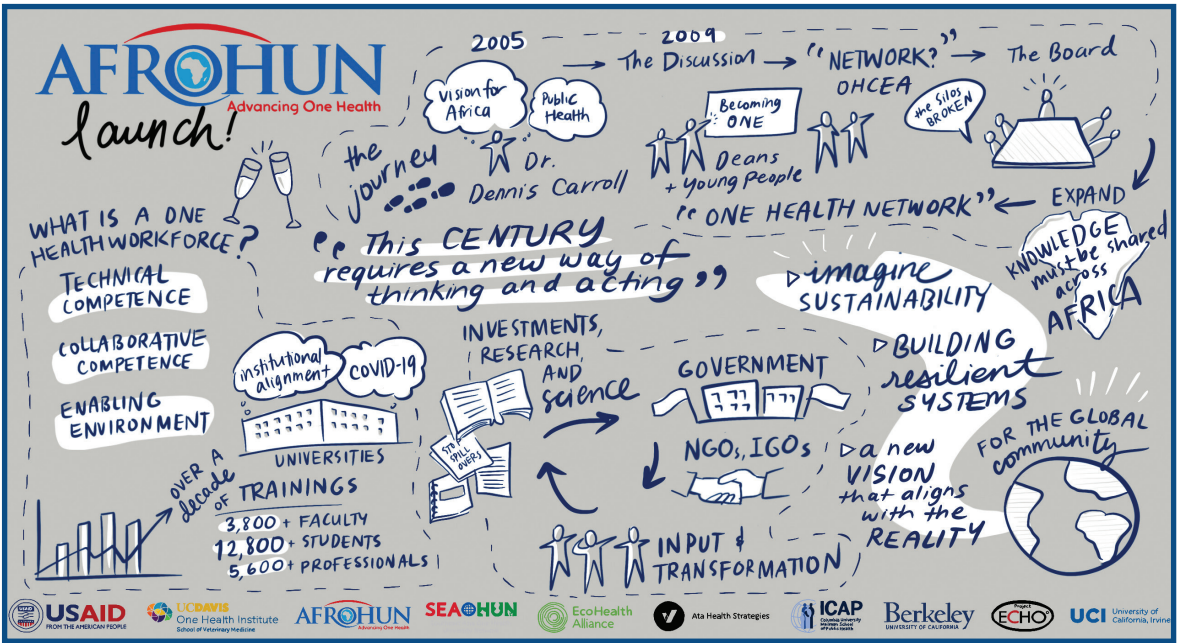 AFROHUN
Advancing One Health
launch!
the
journey
2005
Vision for
Africa
Public
Health
Dr.
Dennis Carroll
2009
The Discussion
Becoming
ONE
Deans
+ Young People
"NETWORK?"
OHCEA
The Board
the Silos
BROKEN
EXPAND
"ONE HEALTH NETWORK"
KNOWLEDGE
must be shared
across
AFRICA
WHAT IS A ONE
HEALTH WORKFORCE?
TECHNICAL
COMPETENCE
COLLABORATIVE
COMPETENCE
ENABLING
ENVIRONMENT
"This CENTURY
requires a new way of
thinking and acting"
institutional
alignment
COVID-19
UNIVERSITIES
OVER A
decade
OF
TRAININGS
3,800+ FACULTY
12,800+ STUDENTS
5,600+ PROFESSIONALS
INVESTMENTS,
RESEARCH,
AND
science
STOP
SPILL
OVERS
GOVERNMENT
NGOs, IGOs
INPUT &
TRANSFORMATION
imagine
SUSTAINABILITY
BUILDING
resilient
SYSTEMS
a new
VISION
that aligns
with the
REALITY
FOR THE GLOBAL
community
USAID
USAID
FROM THE AMERICAN PEOPLE
UCDAVIS
One Health Institute
School of Veterinary Medicine
AFROHUN
Advancing One Health
SEAOHUN
EcoHealth
Alliance
Ata Health Strategies
ICAP
Columbia University
Mailman School
of Public Health
Berkeley
UNIVERSITY OF CALIFORNIA
Project
ECHO
UCI
University of
California, Irvine